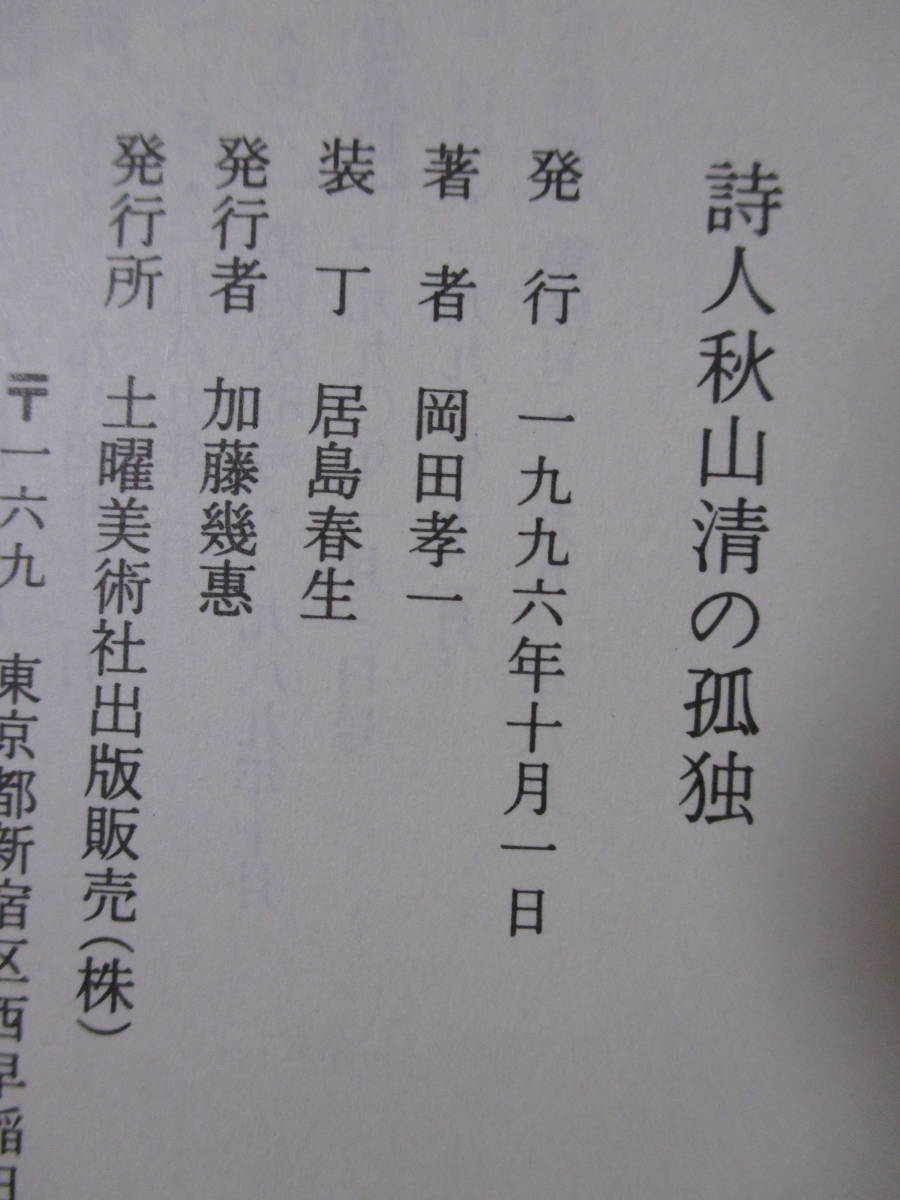 詩人秋山清の孤独
発行 一九九六年十月一日
著者 岡田孝一
装丁 居島春生
発行者 加藤幾惠
発行所 土曜美術社出版販売(株)
〒一六九 東京都新宿区西早稲田